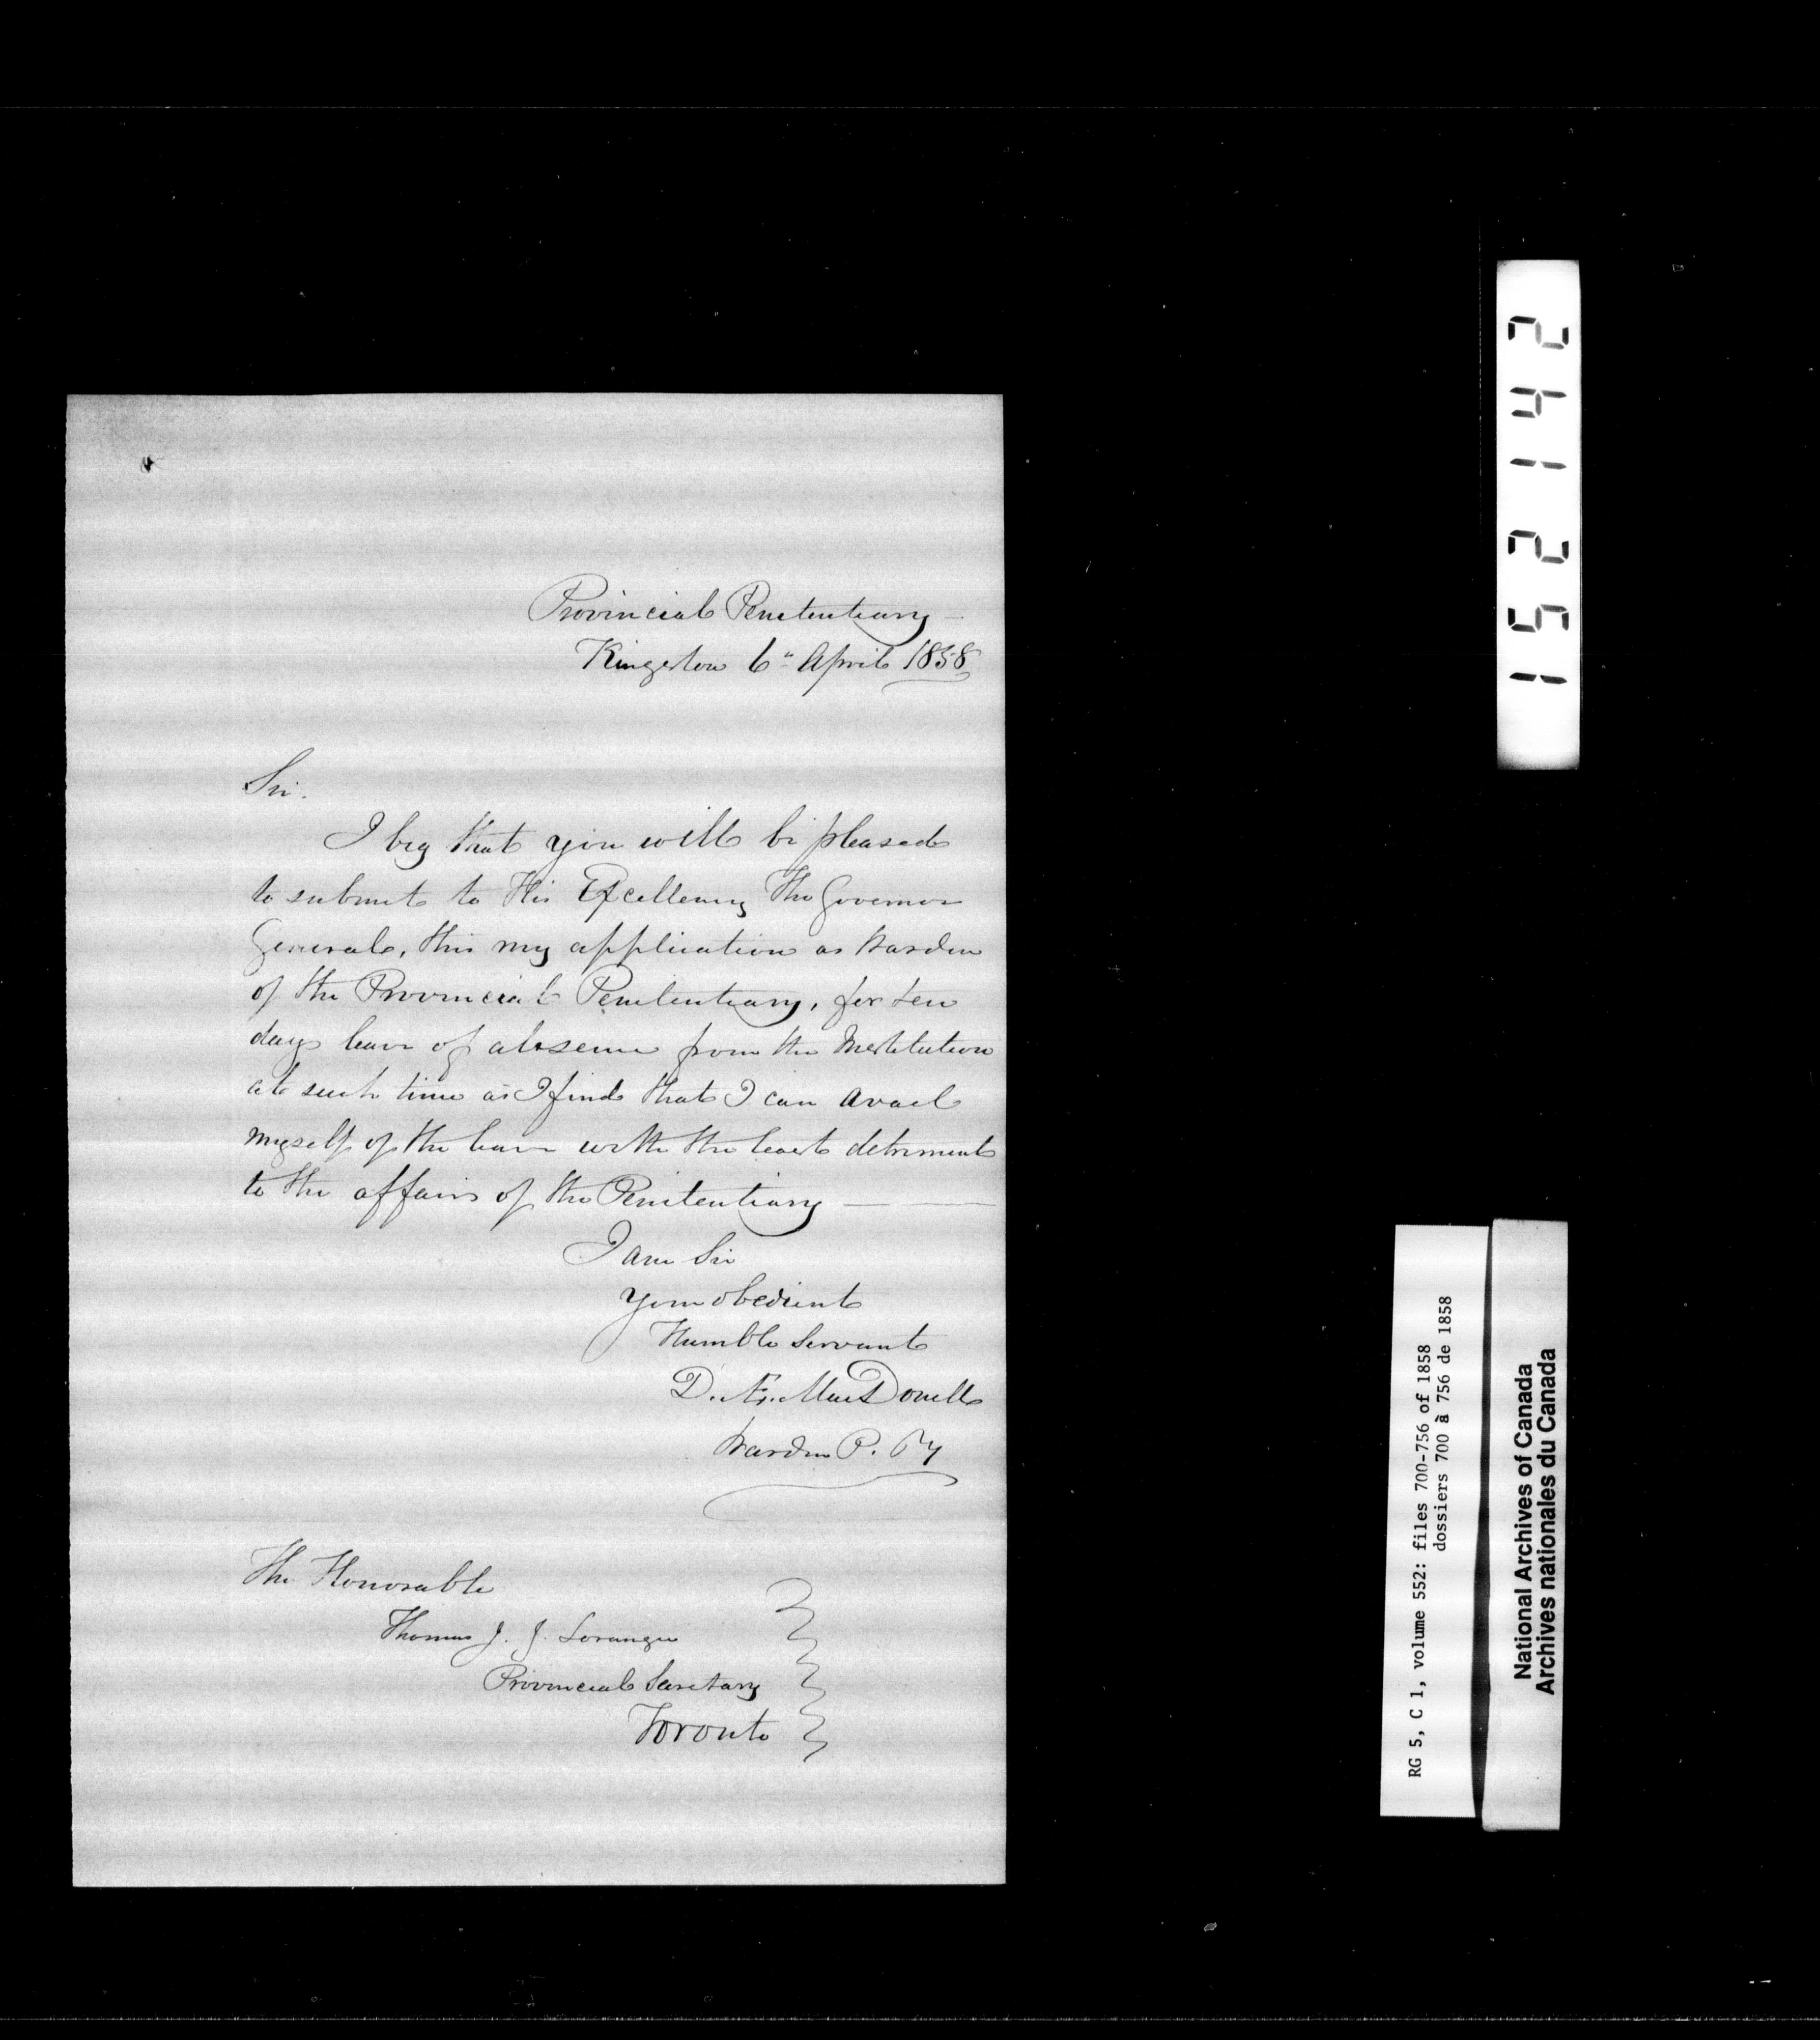 Provincial Penitentiary
Kingston 6" April 1858
Sir.
I beg that you will be pleased
to submit to His Excellency The Governor
General, this my application as Warden
of the Provincial Penitentiary, for ten
days leave of absence from the Institution
at such time as I find that I can avail
myself of the leave with the least detriment
to the affairs of the Penitentiary
I am Sir
Your obedient
Humble Servant
D. Æ. MacDonell
Warden P. Py
The Honorable
Thomas J. J. Loranger
Provincial Secretary
Toronto
152142
RG 5, C 1, volume 552: files 700-756 of 1858
dossiers 700 à 756 de 1858
National Archives of Canada
Archives nationales du Canada